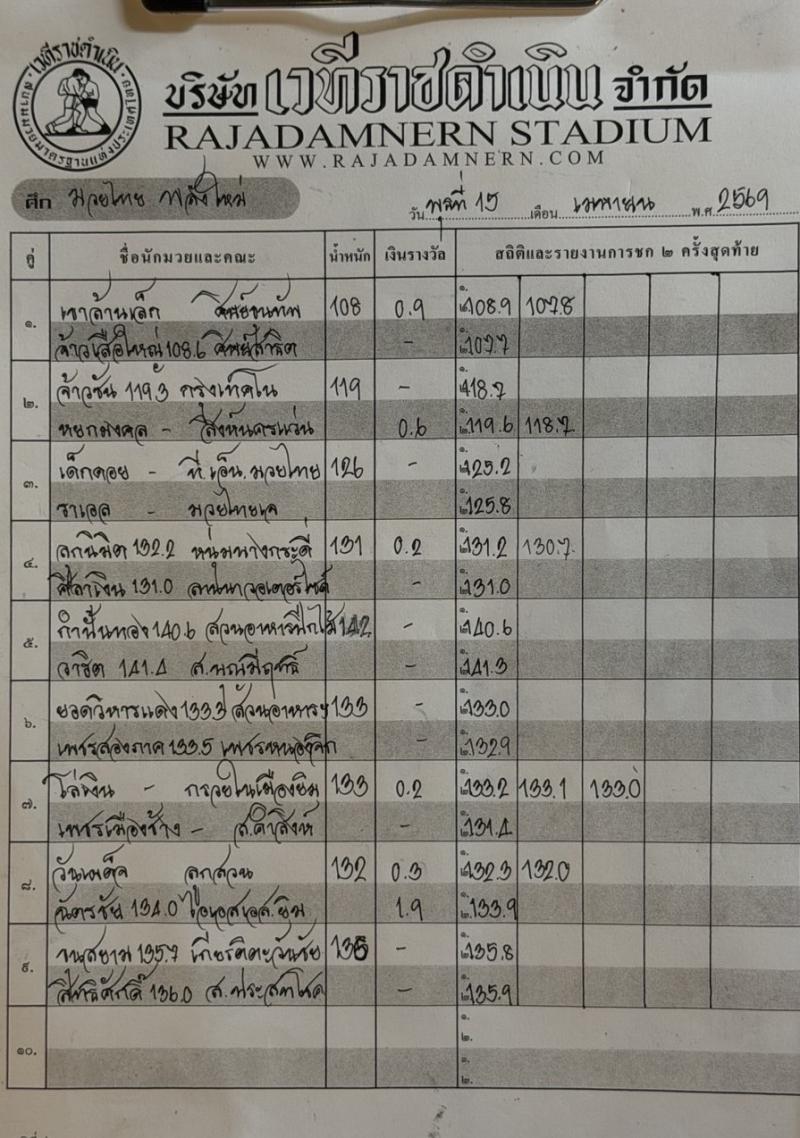 เวทีราชดำเนิน
สนามมวยมาตรฐานแห่งประเทศไทย
บริษัท เวทีราชดำเนิน จำกัด
RAJADAMNERN STADIUM
WWW.RAJADAMNERN.COM
ศึก มวยไทย พลังใหม่
วัน พุธที่ 15 เดือน เมษายน พ.ศ. 2569
คู่ ชื่อนักมวยและคณะ น้ำหนัก เงินรางวัล สถิติและรายงานการชก ๒ ครั้งสุดท้าย
๑. เขาล้านเล็ก 108 0.9 ๑. 108.9 107.8
จ้าวเสือใหญ่ 108.6 ศิษย์สาธิต - ๒. 107.7
๒. จ้าวชัน 119.3 กรุงเทคโน 119 - ๑. 118.7
หยกมงคล - สิงห์นครแว่น 0.6 ๒. 119.6 118.7
๓. เด็กดอย - ที.เอ็น.มวยไทย 126 - ๑. 125.2
ราเอล - มวยไทย ๒. 125.8
๔. ลูกนิมิต 132.2 หนุ่มบางกระดี่ 131 0.2 ๑. 131.2 130.7
ศิลาเงิน 131.0 ลานนาวอเตอร์ไซด์ - ๒. 131.0
๕. กำปั้นทอง 140.6 สวนอาหารปีกไม้ 142 - ๑. 140.6
วาธิต 141.4 - ๒. 141.3
๖. ยอดวิหารแดง 133.3 สวนอาหาร 133 - ๑. 133.0
เพชรสองภาค 133.5 - ๒. 132.9
๗. ไล่เงิน - กรวยในเมืองยิม 133 0.2 ๑. 133.2 133.1 133.0
เพชรเมืองช้าง - ส.คำสิงห์ - ๒. 131.4
๘. วันเผด็จ ลูกสวน 132 0.3 ๑. 132.3 132.0
ฉัตรชัย 134.0 ไอเอสเอส.ยิม 1.9 ๒. 133.9
๙. 135.7 136 - ๑. 135.8
สิทธิศักดิ์ 136.0 ส.ประสพโชค - ๒. 135.9
๑๐. ๑.
๒.
๑.
๒.